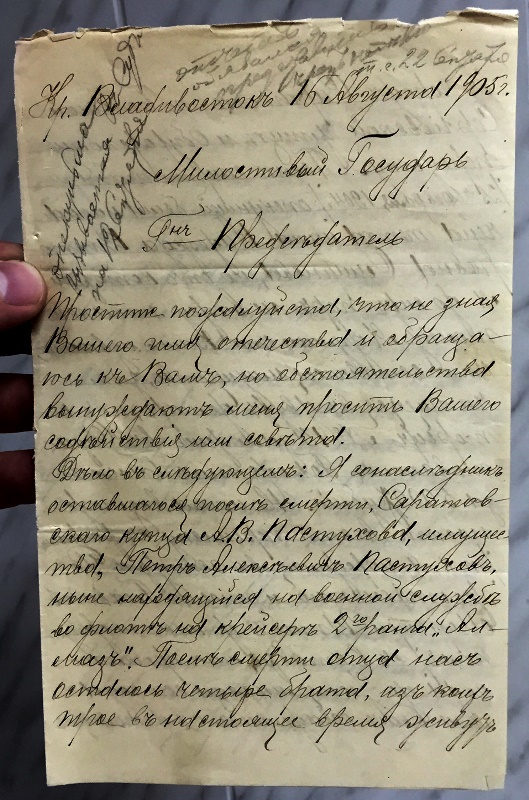 т. г. 22 Сентября
Кр. Владивостокъ 16 Августа 1905 г.
Милостивый Государь
Гнъ Предсѣдатель
Простите пожалуйста, что не зная
Вашего имя отечества и обраща-
юсь къ Вамъ, но обстоятельства
вынуждаютъ меня просить Вашего
содѣйствія или совѣта.
Дѣло въ слѣдующемъ: Я сонаслѣдникъ
оставшагося послѣ смерти, Саратов-
скаго купца А.В. Пастухова, имущес
тва, Петръ Алексѣевичъ Пастуховъ,
нынѣ находящійся на военной службѣ
во флотѣ на крейсерѣ 2го ранга „Ал-
мазъ“. Послѣ смерти отца насъ
осталось четыре брата, изъ коихъ
трое въ настоящее время живутъ